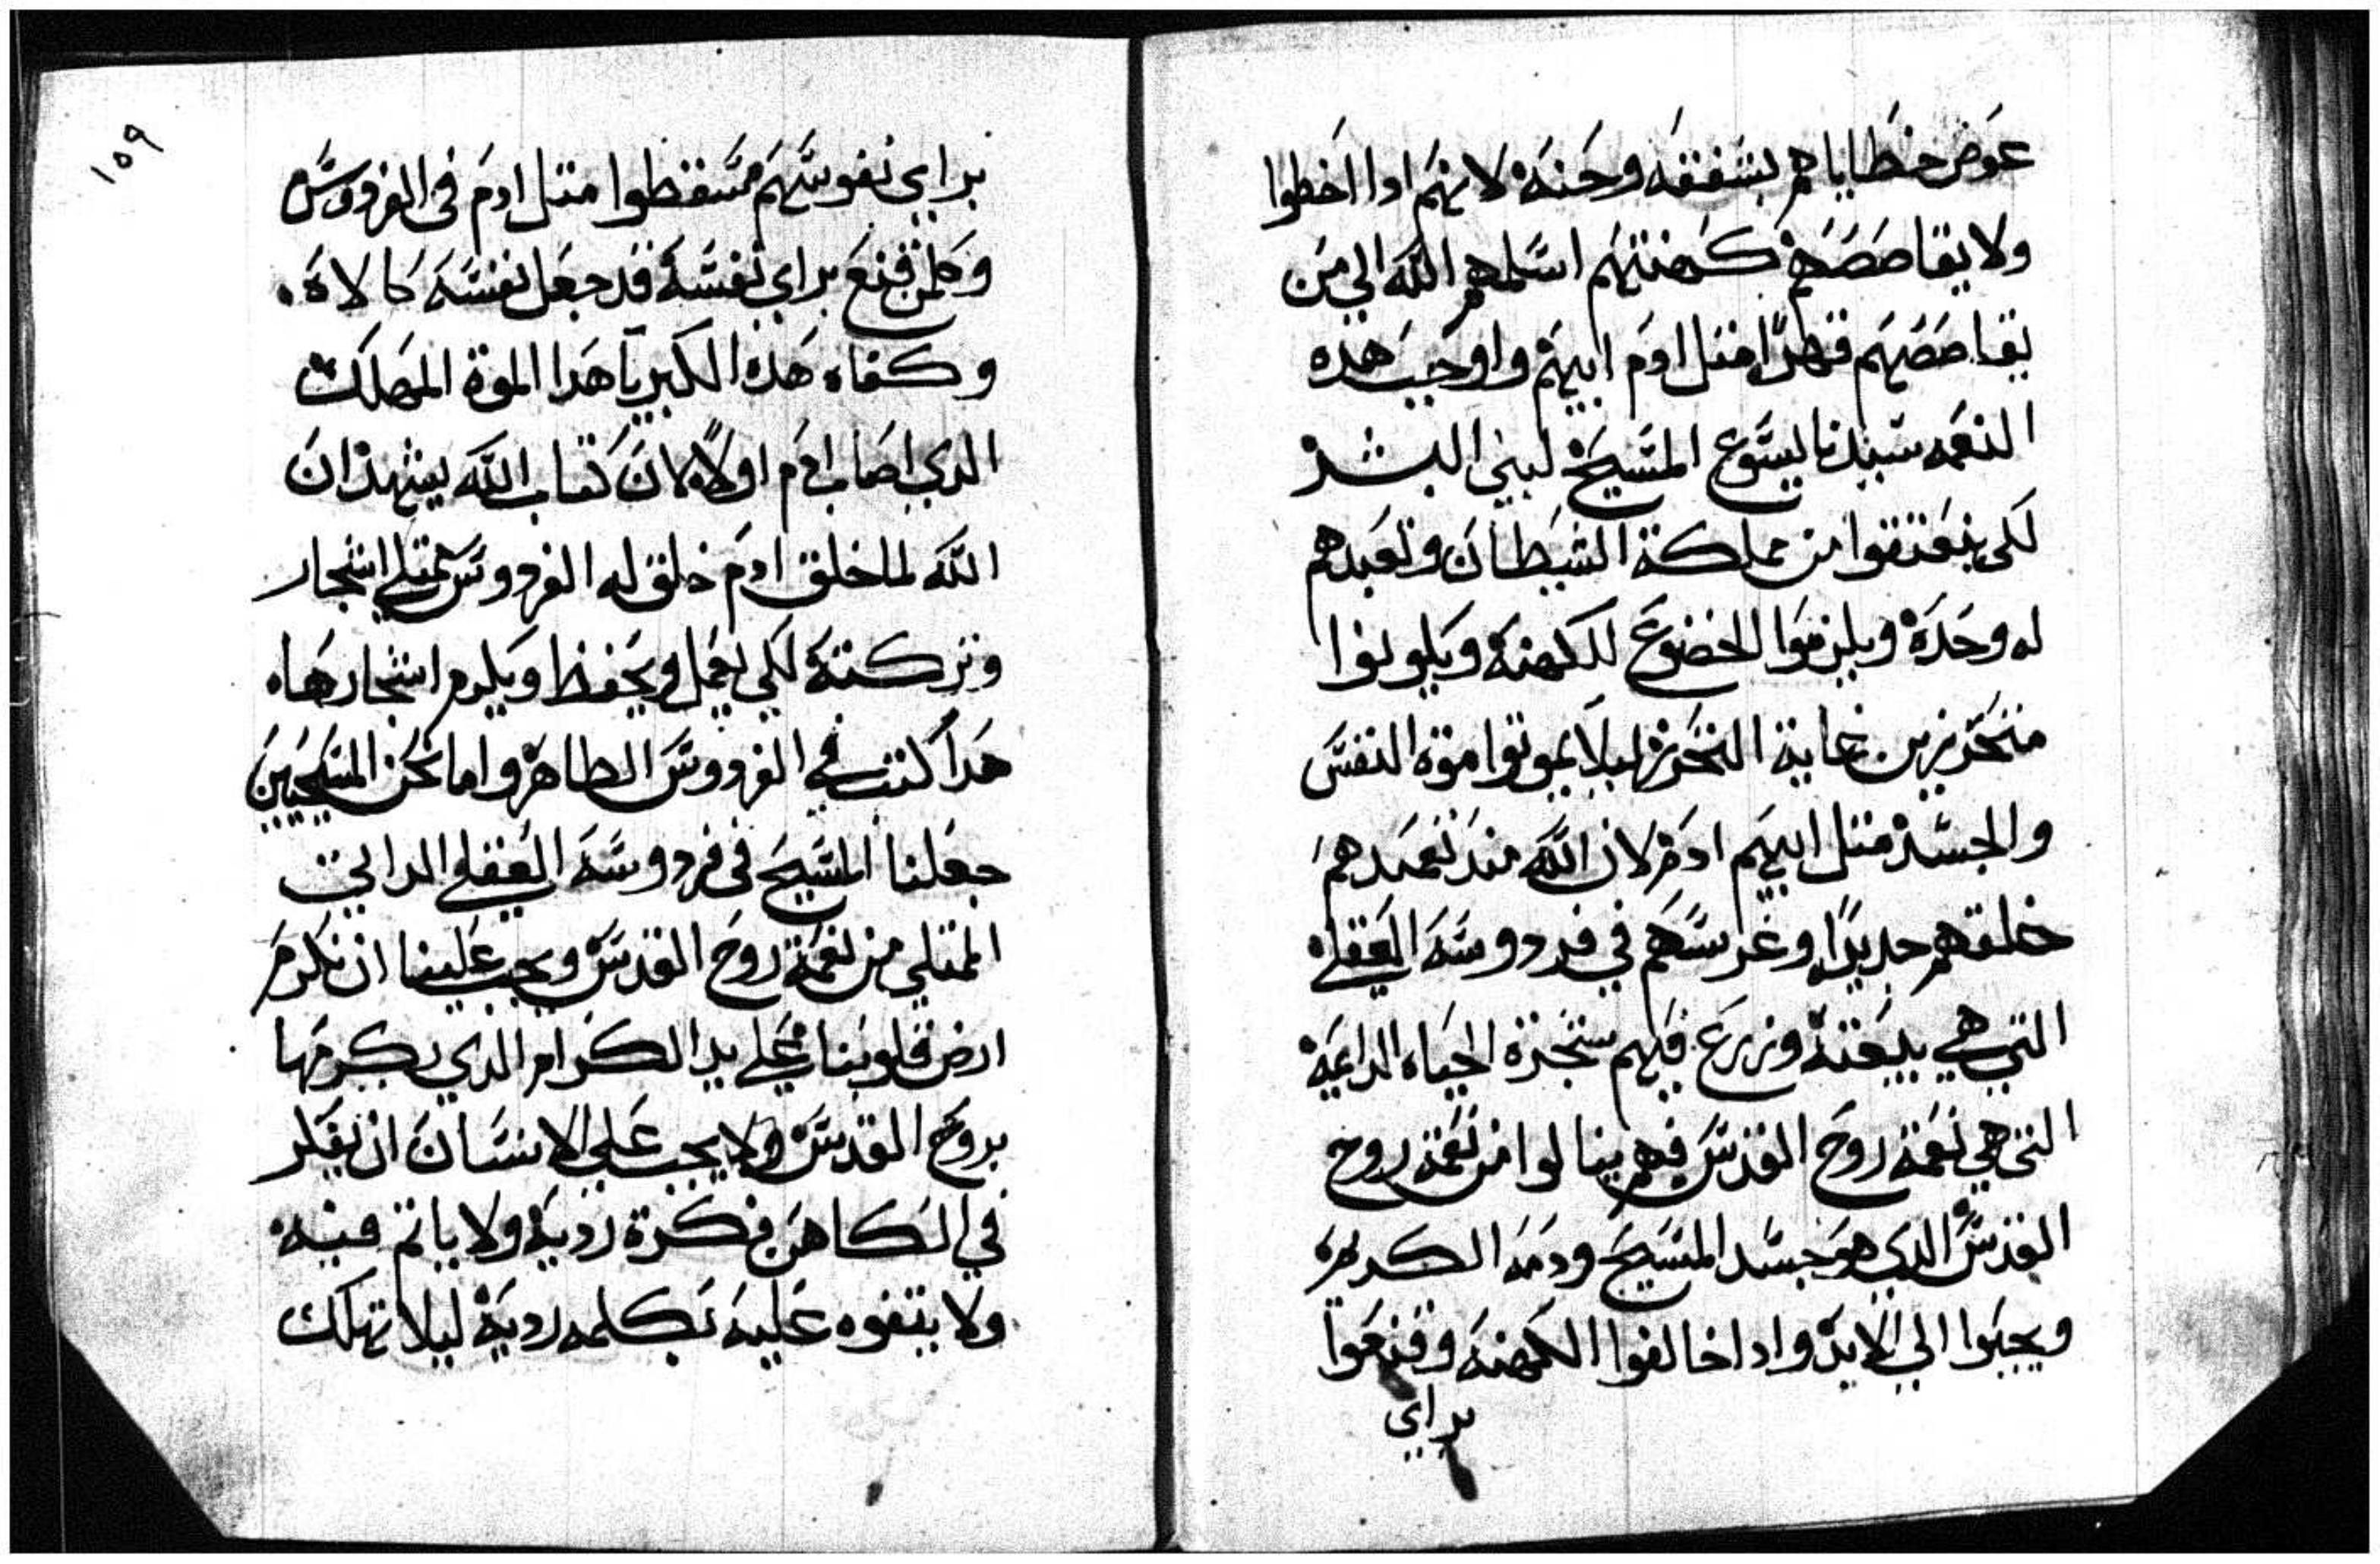 عوض خطاياهم بشفقه وحنه لانهم ادا اخطوا
ولا يقاصصهم كهنتهم اسلمهم الله الي من
يقاصصهم قهرًا متل ادم ابيهم واوجب هده
النعمه سيدنا يسوع المسيح لبني البشر
لكي ينعتقوا من مملكة الشيطان وتعبدهم
له وحده ويلزموا الخضوع للكهنه ويكونوا
متحرزين غاية التحرز ليلا يموتوا موتة النفس
والجسد متل ابيهم ادم لان الله مند تعمدهم
خلقهم جديدًا وغرسهم في فردوسه العقلي
التي هي بيعته وزرع فيهم شجرة الحياه الدايمه
التي هي نعمة روح القدس فهم ينالوا من نعمة روح
القدس الدي هو جسد المسيح ودمه الكريم
ويحيوا الي الابد وادا خالفوا الكهنه وقنعوا
براي
١٥٩
براي نفوسهم سقطوا متل ادم في الفردوس
وكلمن قنع براي نفسه قد جعل نفسه كالاه
وكفاه هده الكبريا هدا الموة المهلك
الدي اصاب ادم اولًا لان كتاب الله يشهد ان
الله لما خلق ادم خلق له الفردوس ممتلي اشجار
وتركته لكي يعمل ويحفظ ويكرم اشجارها
هدا كتب في الفردوس الطاهر واما نحن المسيحيين
جعلنا المسيح في فردوسه العقلي الداني
الممتلي من نعمة روح القدس ويجب علينا ان نكرم
ارض قلوبنا علي يد الكرام الدي يكرمها
بروح القدس ولا يجب علي الانسان ان يفكر
في الكاهن فكرة رديه ولا ياتم فيه
ولا يتفوه عليه بكلمه رديه ليلا تهلك